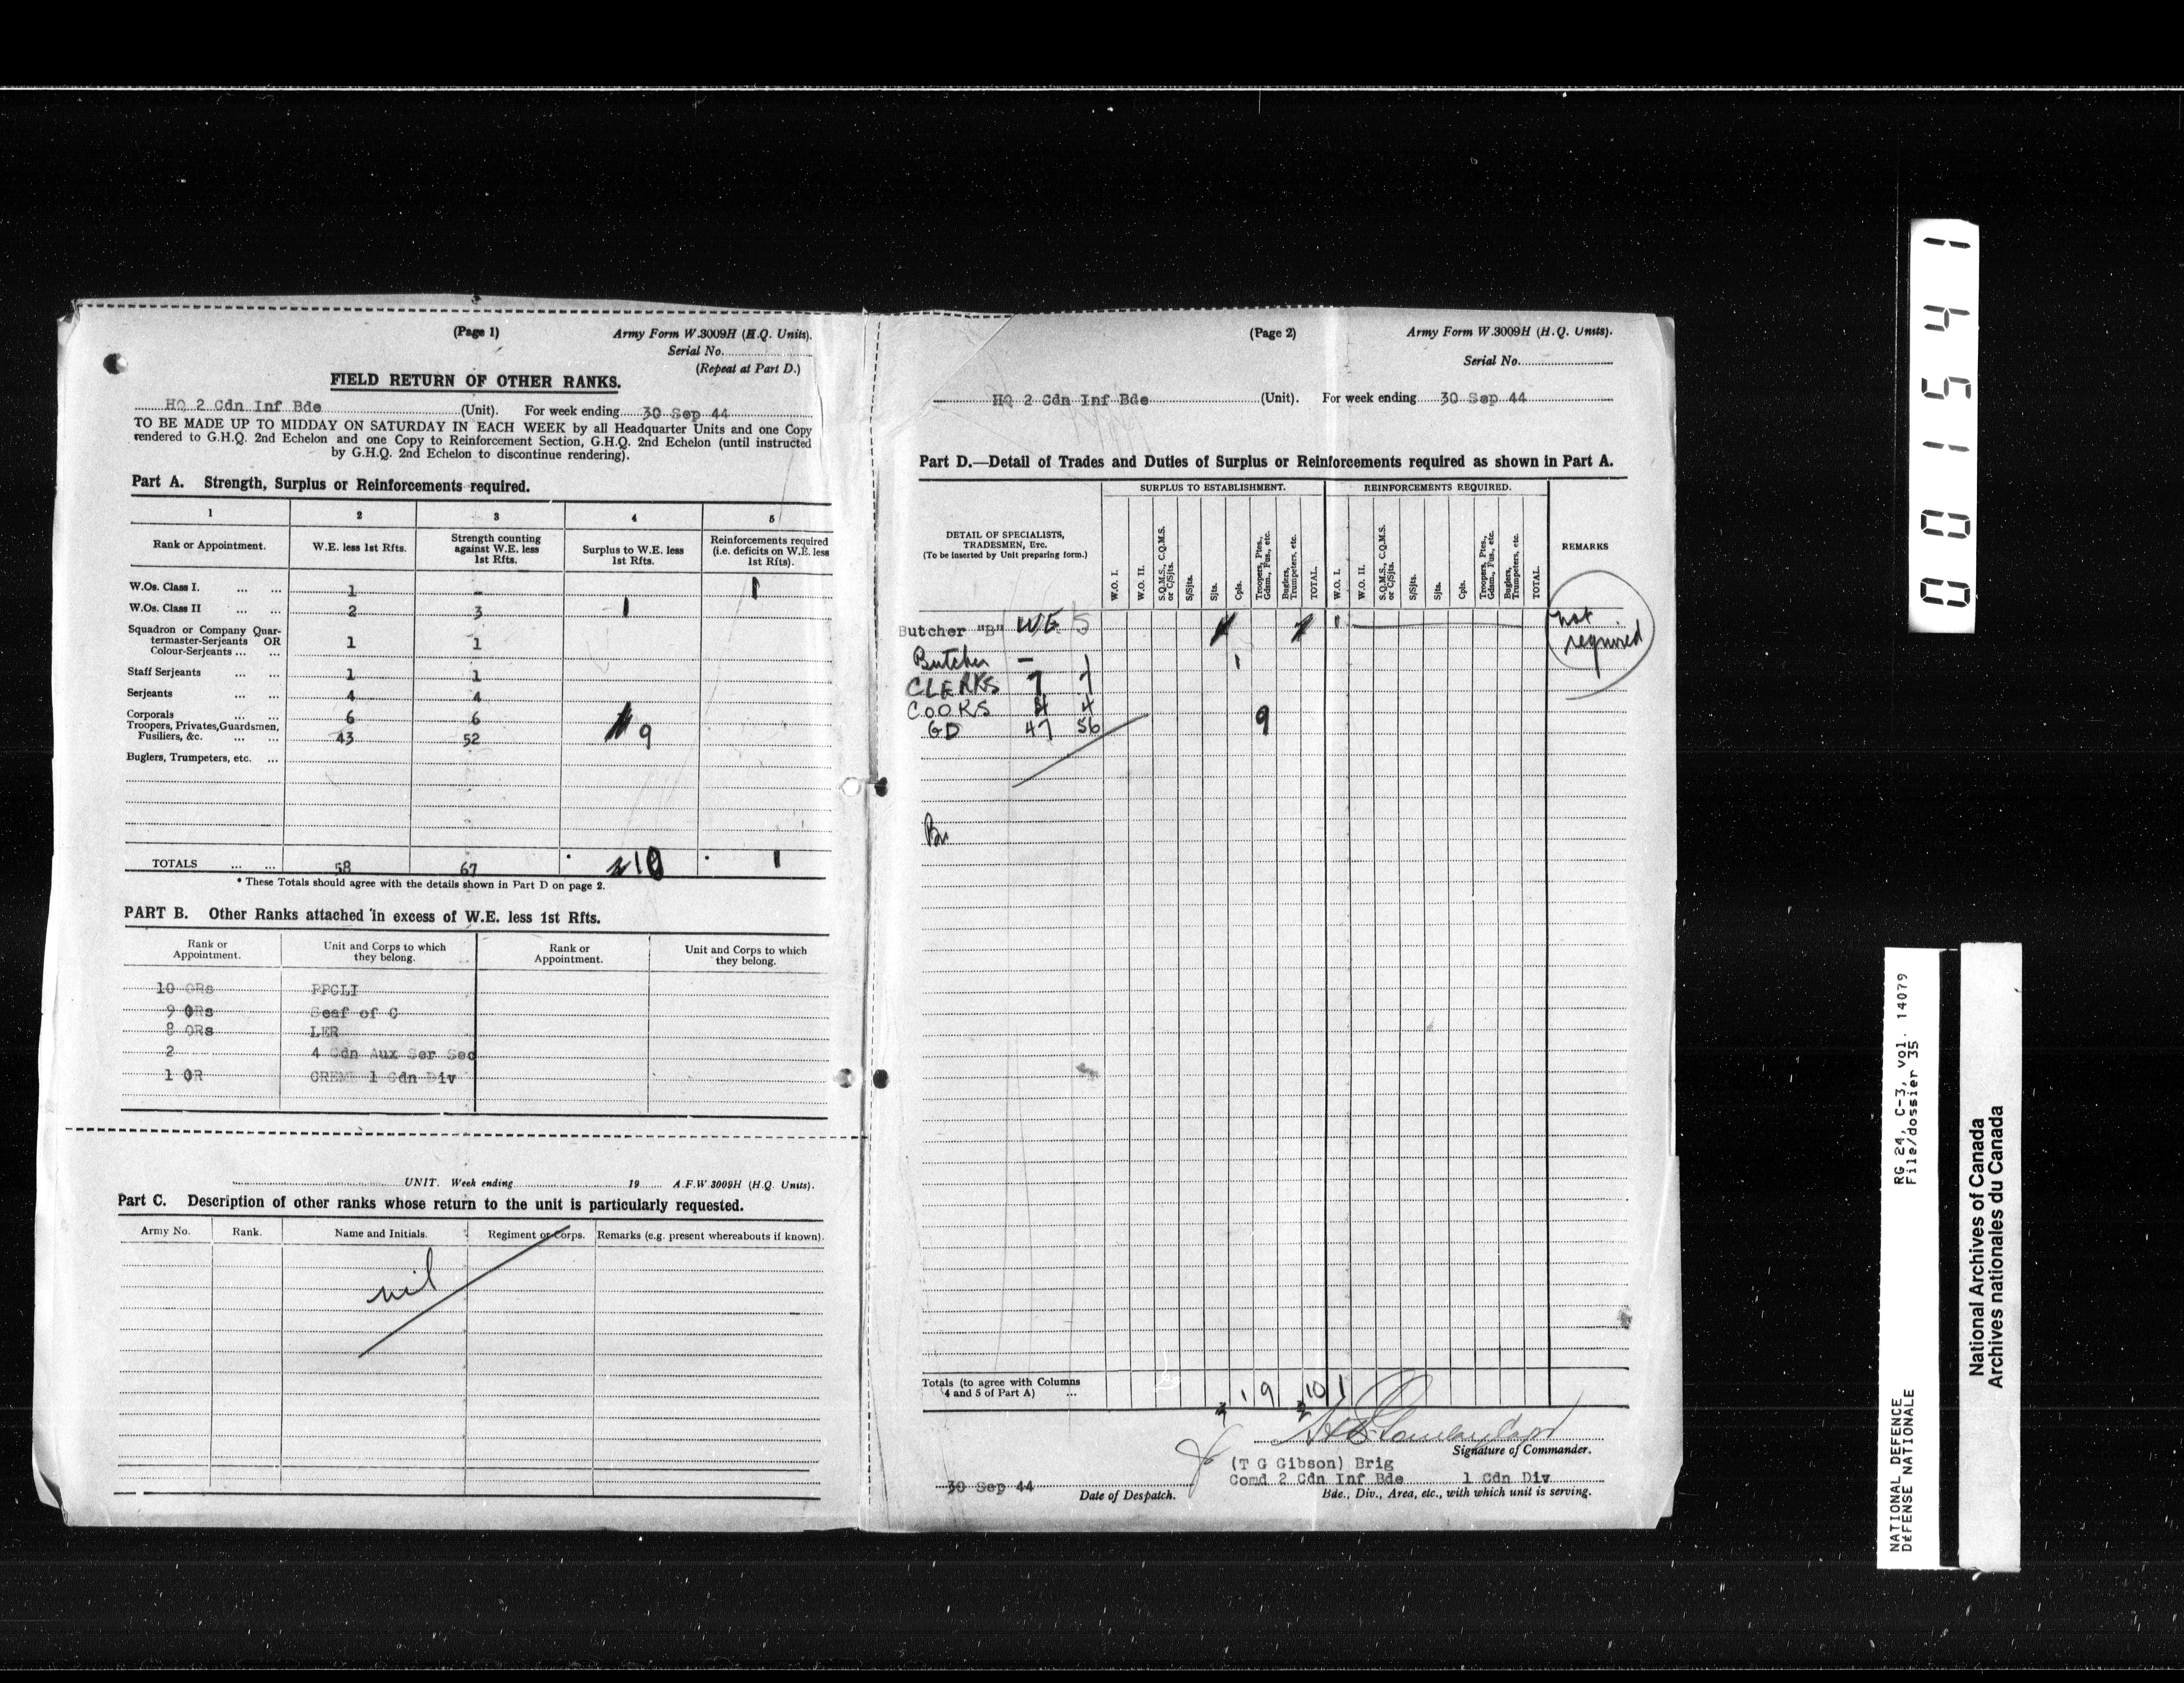 (Page 1)
Army Form W.3009H (H.Q. Units).
Serial No.
(Repeat at Part D.)
FIELD RETURN OF OTHER RANKS.
HQ 2 Cdn Inf Bde (Unit). For week ending 30 Sep 44
TO BE MADE UP TO MIDDAY ON SATURDAY IN EACH WEEK by all Headquarter Units and one Copy
rendered to G.H.Q. 2nd Echelon and one Copy to Reinforcement Section, G.H.Q. 2nd Echelon (until instructed
by G.H.Q. 2nd Echelon to discontinue rendering).
Part A. Strength, Surplus or Reinforcements required.
1 2 3 4 5
Rank or Appointment. W.E. less 1st Rfts. Strength counting against W.E. less 1st Rfts. Surplus to W.E. less 1st Rfts. Reinforcements required (i.e. deficits on W.E. less 1st Rfts).
W.Os. Class I. ... ... 1 - 1
W.Os. Class II ... ... 2 3 1
Squadron or Company Quar-
termaster-Serjeants OR 1 1
Colour-Serjeants ... ...
Staff Serjeants ... ... 1 1
Serjeants ... ... 4 4
Corporals ... ... 6 6
Troopers, Privates, Guardsmen,
Fusiliers, &c. ... ... 43 52 9
Buglers, Trumpeters, etc. ...
TOTALS ... ... 58 67 10 1
* These Totals should agree with the details shown in Part D on page 2.
PART B. Other Ranks attached in excess of W.E. less 1st Rfts.
Rank or Appointment. Unit and Corps to which they belong. Rank or Appointment. Unit and Corps to which they belong.
10 ORs PPCLI
9 ORs Seaf of C
8 ORs LER
2 4 Cdn Aux Ser Sec
1 OR CREME 1 Cdn Div
UNIT. Week ending 19 A.F.W 3009H (H.Q. Units).
Part C. Description of other ranks whose return to the unit is particularly requested.
Army No. Rank. Name and Initials. Regiment or Corps. Remarks (e.g. present whereabouts if known).
nil
(Page 2)
Army Form W.3009H (H.Q. Units).
Serial No.
HQ 2 Cdn Inf Bde (Unit). For week ending 30 Sep 44
Part D.—Detail of Trades and Duties of Surplus or Reinforcements required as shown in Part A.
SURPLUS TO ESTABLISHMENT. REINFORCEMENTS REQUIRED.
DETAIL OF SPECIALISTS,
TRADESMEN, Etc.
(To be inserted by Unit preparing form.)
W.O. I. W.O. II. S.Q.M.S., C.Q.M.S. or C/Sjts. S/Sjts. Sjts. Cpls. Troopers, Ptes., Gdsm., Fus., etc. Buglers, Trumpeters, etc. TOTAL. W.O. I. W.O. II. S.Q.M.S., C.Q.M.S. or C/Sjts. S/Sjts. Sjts. Cpls. Troopers, Ptes., Gdsm., Fus., etc. Buglers, Trumpeters, etc. TOTAL. REMARKS
Butcher "B" WE S 1 not required
Butcher - 1 1
CLERKS 7 7
COOKS 4 4
GD 47 56 9
Bu
Totals (to agree with Columns
4 and 5 of Part A) ... 1 9 10 1
Signature of Commander.
(T G Gibson) Brig
Comd 2 Cdn Inf Bde 1 Cdn Div
Bde., Div., Area, etc., with which unit is serving.
30 Sep 44
Date of Despatch.
001541
RG 24, C-3, vol. 14079
File/dossier 35
NATIONAL DEFENCE
DÉFENSE NATIONALE
National Archives of Canada
Archives nationales du Canada